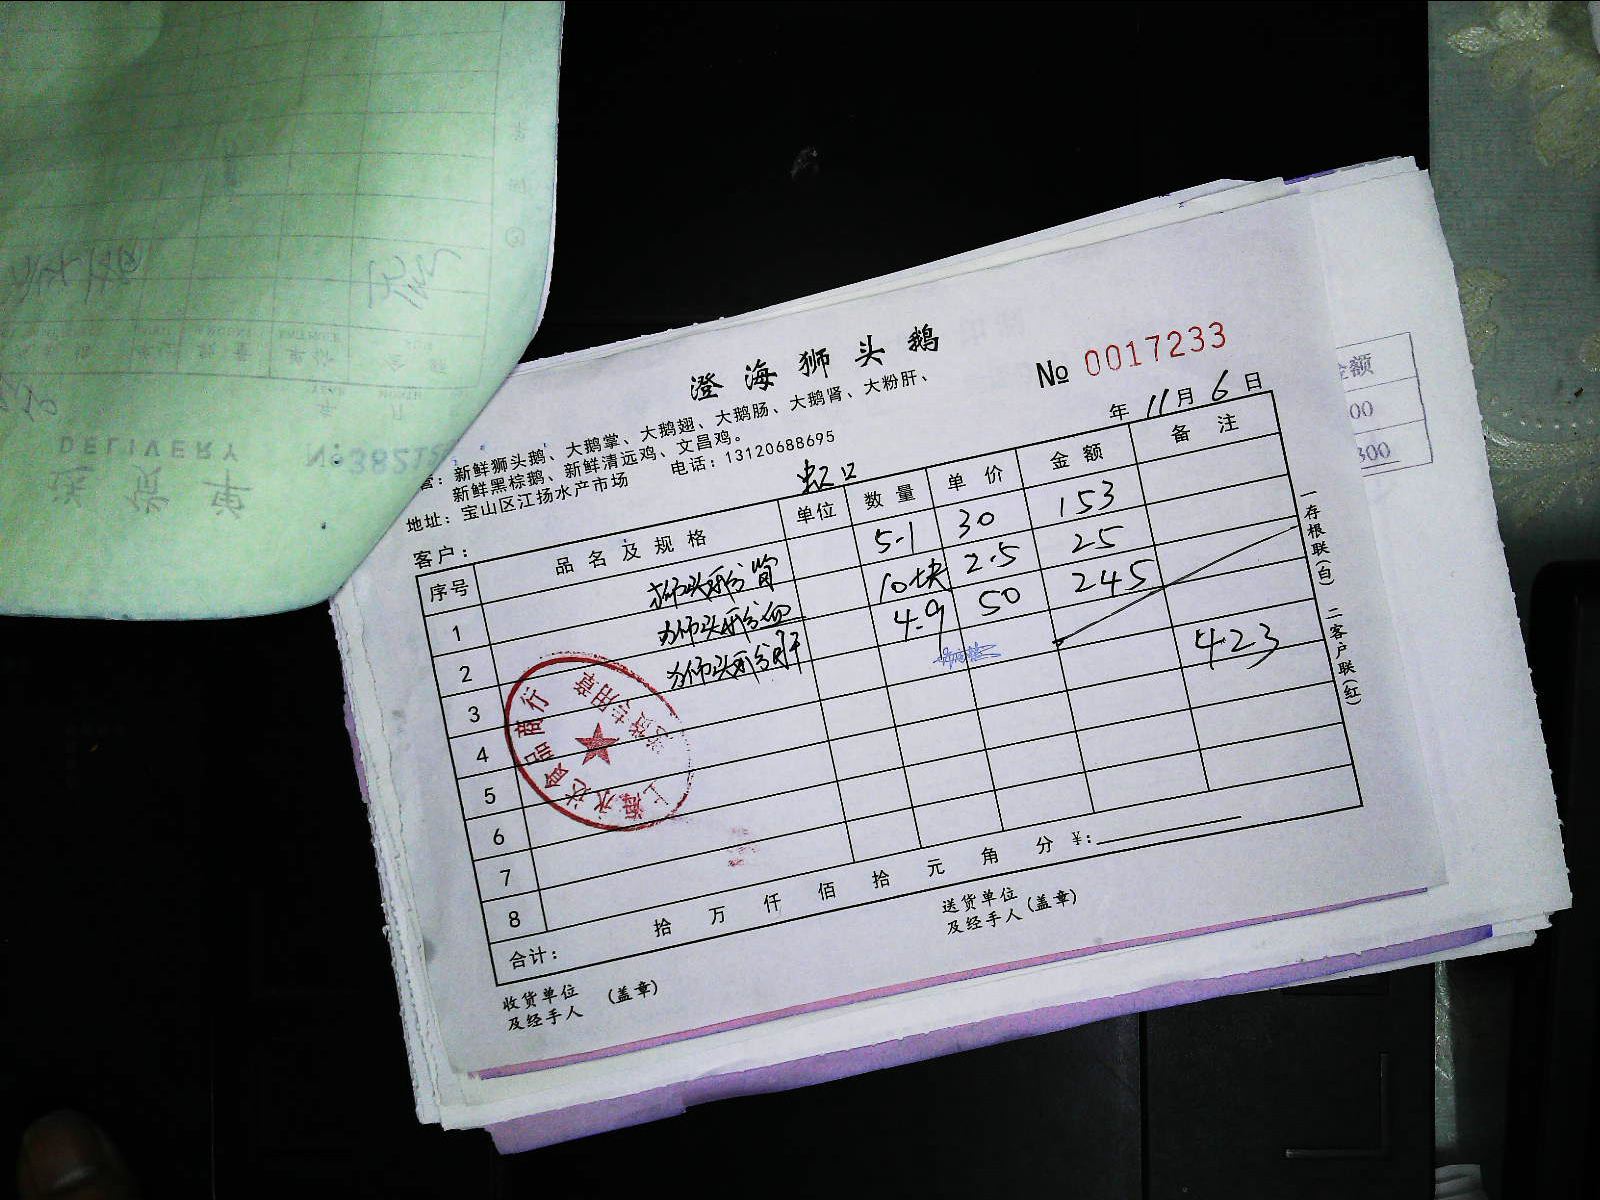 澄海狮头鹅
№ 0017233
营：新鲜狮头鹅、大鹅掌、大鹅翅、大鹅肠、大鹅肾、大粉肝、
新鲜黑棕鹅、新鲜清远鸡、文昌鸡。
地址：宝山区江扬水产市场 电话：13120688695
年 11 月 6 日
客户： 虹口
序号 品名及规格 单位 数量 单价 金额 备注
1 狮头鹅 5.1 30 153
2 狮头鹅 10块 2.5 25
3 狮头鹅 肝 4.9 50 245
423
4
5
6
7
8
合计： 拾 万 仟 佰 拾 元 角 分 ¥:
收货单位
及经手人 (盖章)
送货单位
及经手人 (盖章)
一存根联(白) 二客户联(红)
上海水达食品商行
送货专用章
金额
00
300
DELIVERY
送货单